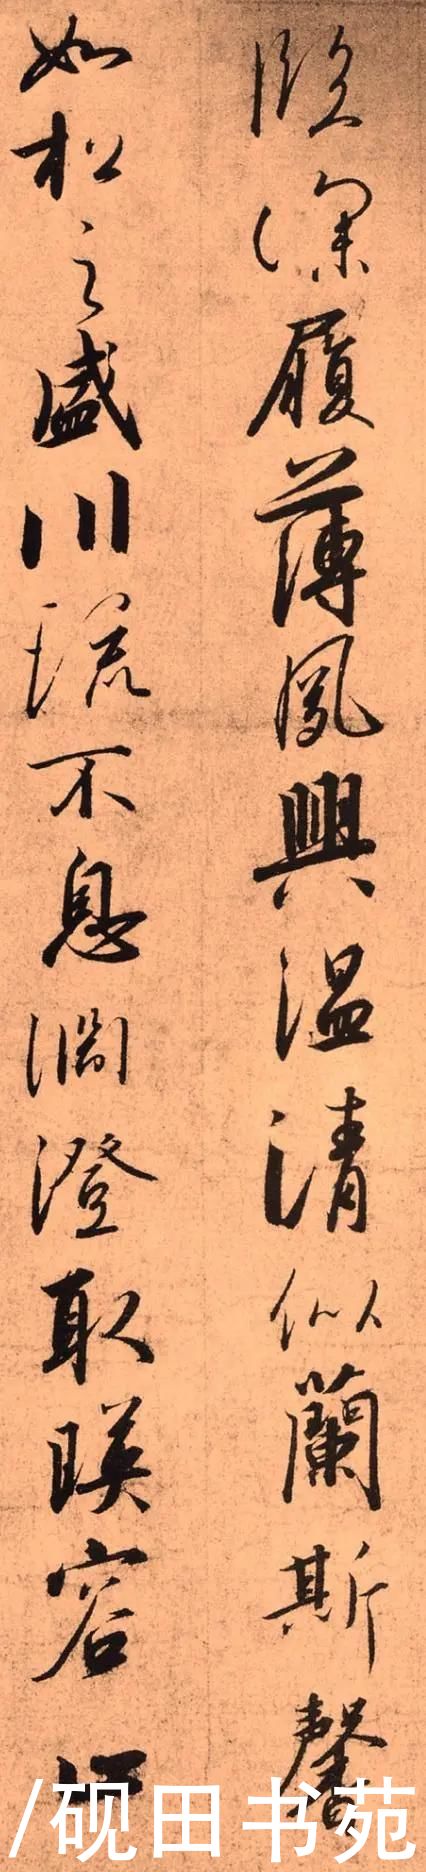 臨深履薄夙興温清似蘭斯馨
如松之盛川流不息淵澄取暎容
/砚田书苑